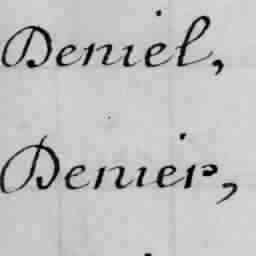 Deniel,
Denier,